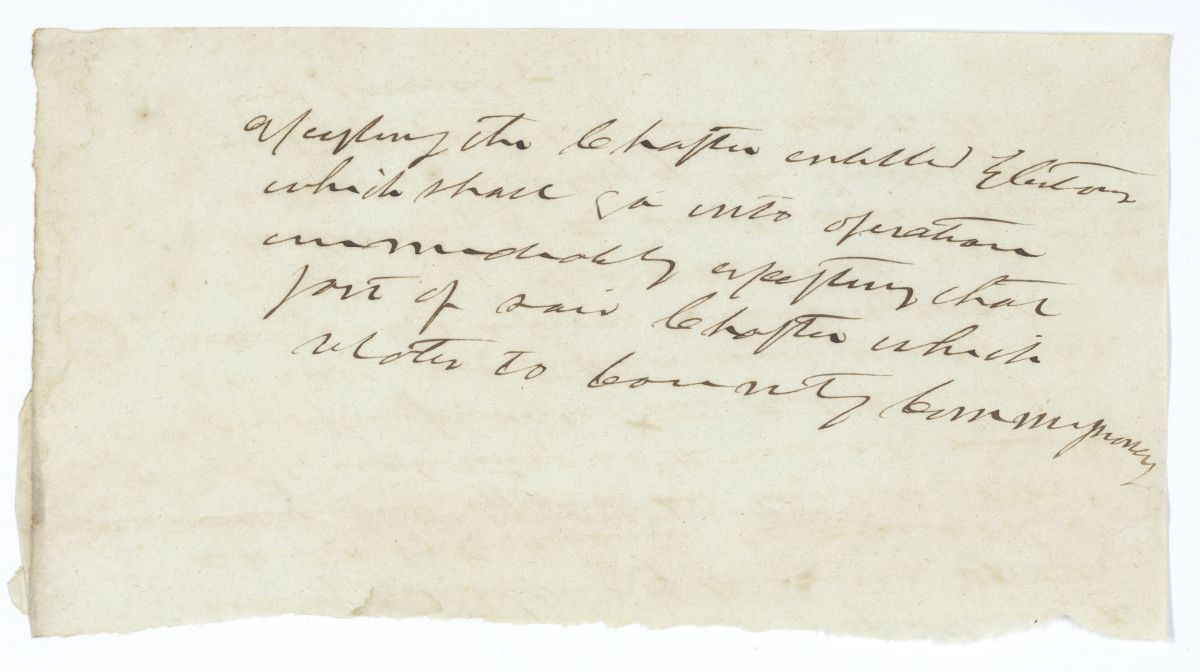 excepting the Chapter entitled Elections
which shall go into operation
immediately excepting that
part of said Chapter which
relates to County Commissioners